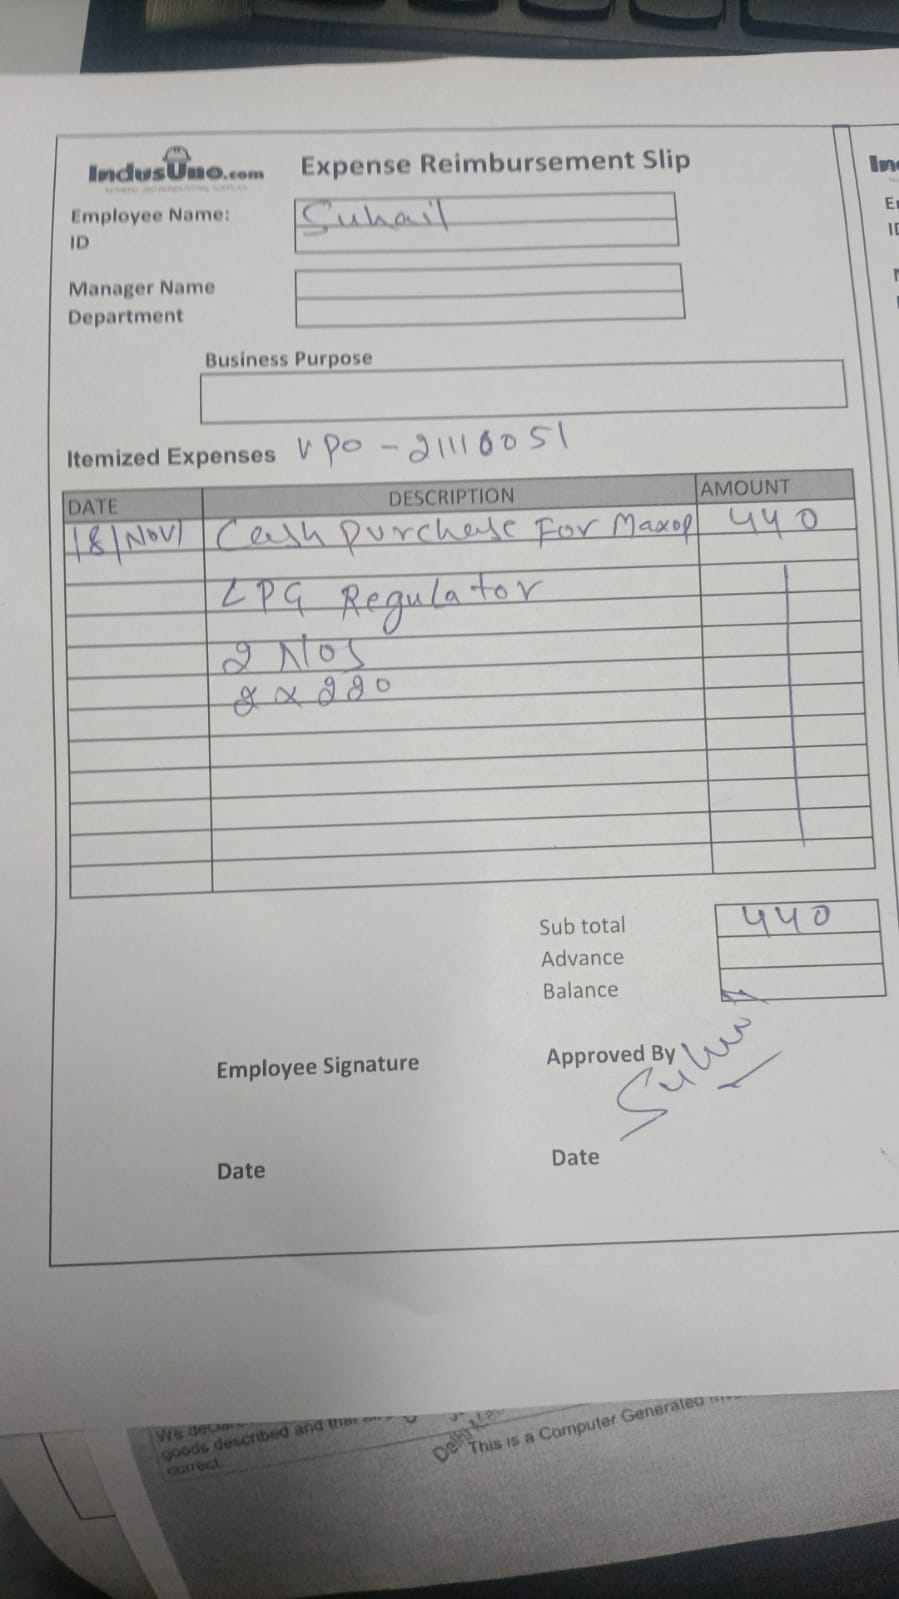 IndusUno.com Expense Reimbursement Slip
Employee Name: Suhail
ID
Manager Name
Department
Business Purpose
Itemized Expenses VPO - 21110051
DATE DESCRIPTION AMOUNT
18/Nov/ Cash purchase For Maxop 440
LPG Regulator
2 Nos
2 x 220
Sub total 440
Advance
Balance
Employee Signature Approved By
Date Date
goods described and that
correct.
This is a Computer Generated